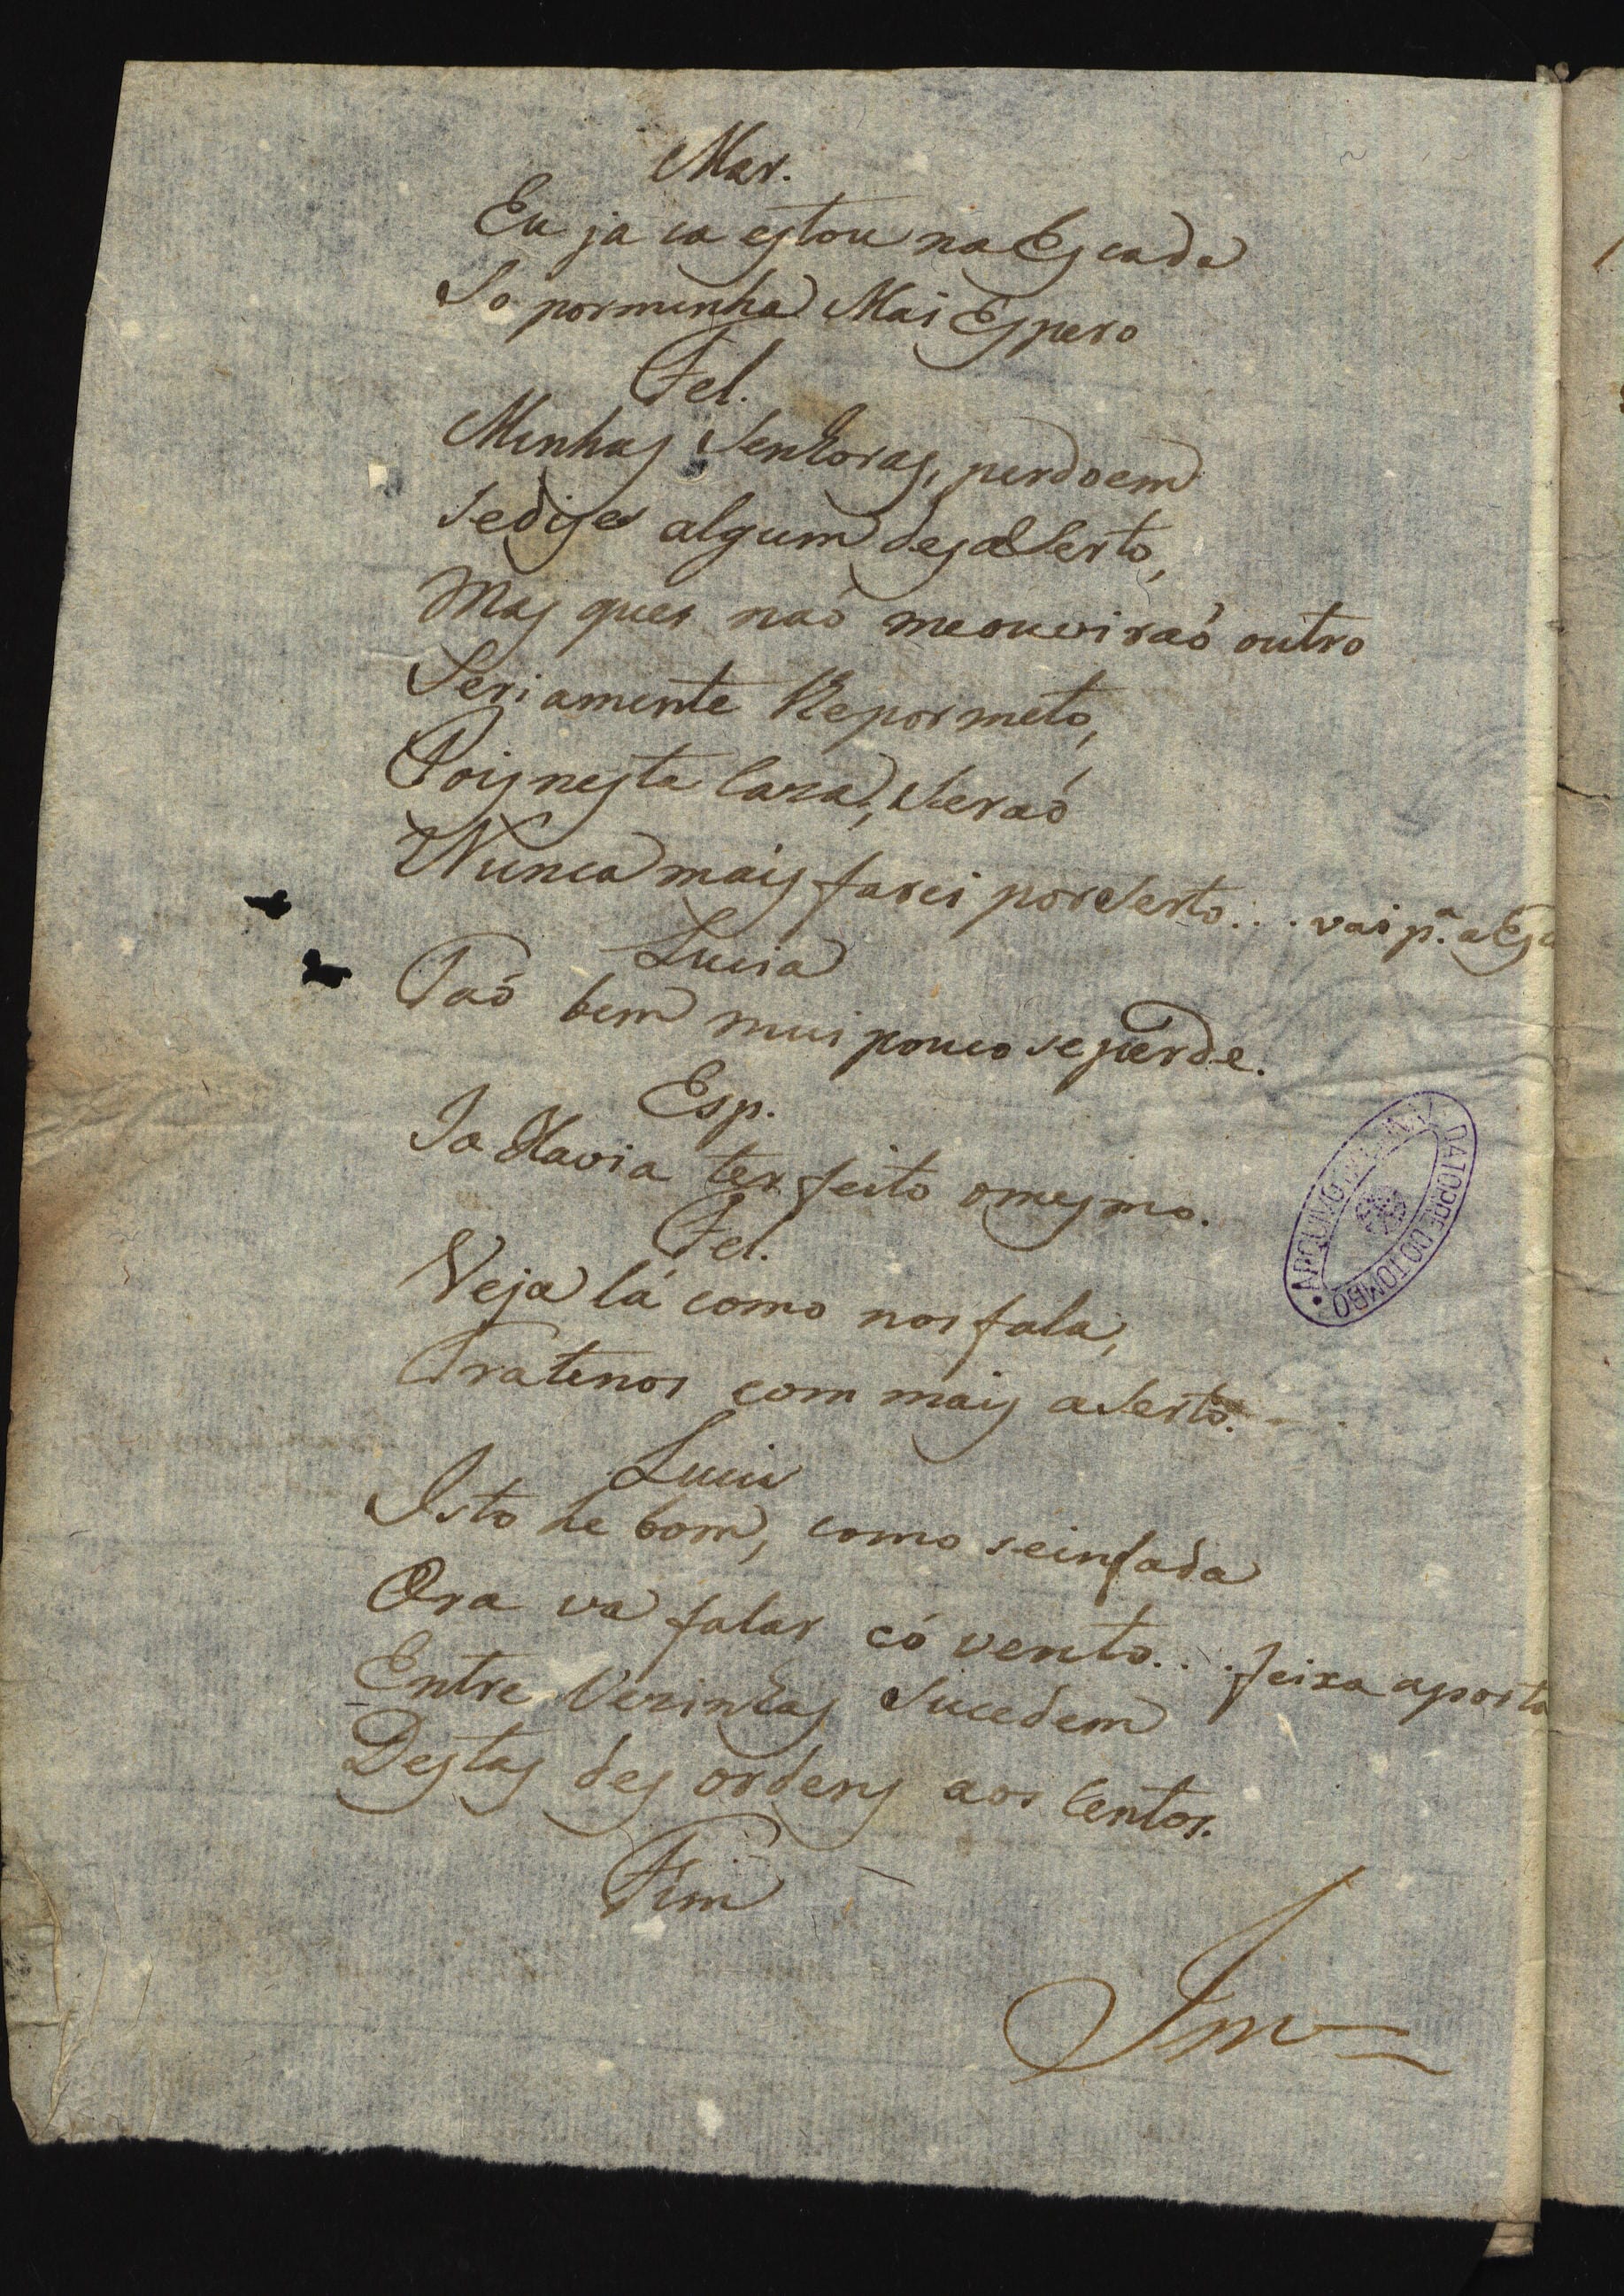 Mar.
Eu ja ca estou na Escada
So porminha Mai Espero
Fel.
Minhas Senhoras, perdoem
Sedise algum desaSerto,
Mas que naó meouviraó outro
Seriamente
Poisnesta Caza, Seraó
Nunca mais farei porSerto... vai p.ª a Es
Lucia
Taó bem mui pouco seperde.
Esp.
Ja Havia ter feito omesmo.
Fel.
Veja lá como nos fala,
Tratenos com mais aSerto.
Lucia
Isto he bom, como seinfada
Ora va falar có vento... feixa aporta
Entre Vezinhas Sucedem
Destas des ordens aos Centos.
Fim
ARQUIVO DA TORRE DO TOMBO